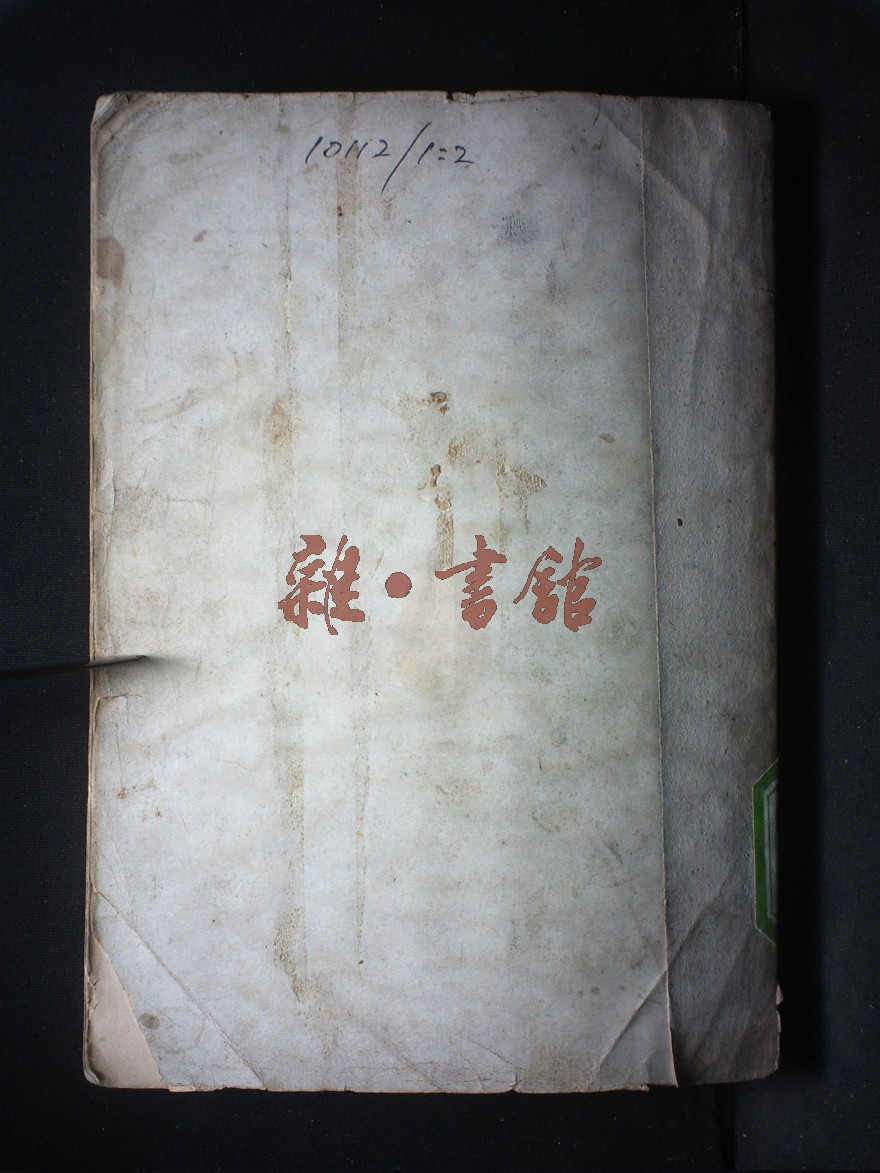 10112/1:2
雜·書館